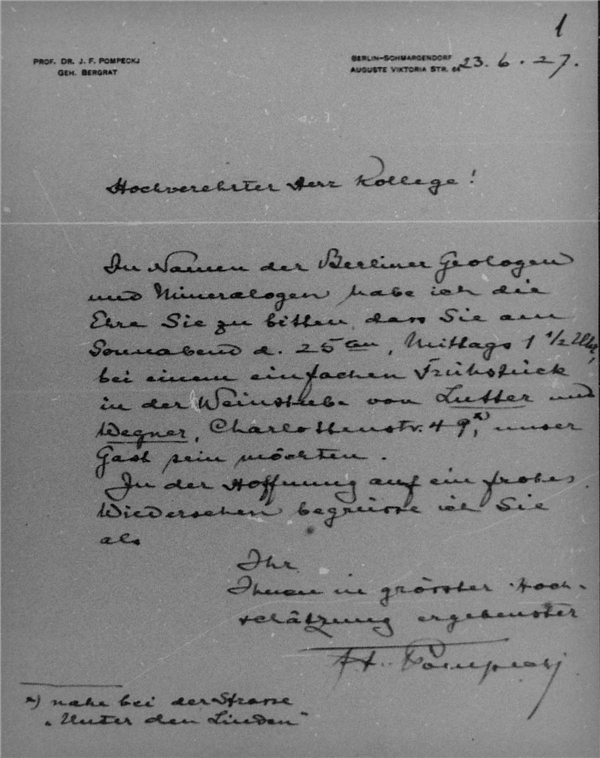 1
PROF. DR. J. F. POMPECKJ
GEH. BERGRAT
BERLIN-SCHMARGENDORF
AUGUSTE VIKTORIA STR. 64
23. 6. 27.
Hochverehrter Herr Kollege!
Im Namen der Berliner Geologen
und Mineralogen habe ich die
Ehre Sie zu bitten, dass Sie am
Sonnabend d. 25ten, Mittags 1 1/2 Uhr,
bei einem einfachen Frühstück
in der Weinstube von Lutter und
Wegner, Charlottenstr. 49,*) unser
Gast sein möchten.
In der Hoffnung auf ein frohes
Wiedersehen begrüsse ich Sie
als
Ihr
Ihnen in grösster Hoch-
schätzung ergebenster
Pompeckj
*) nahe bei der Strasse
„Unter den Linden"